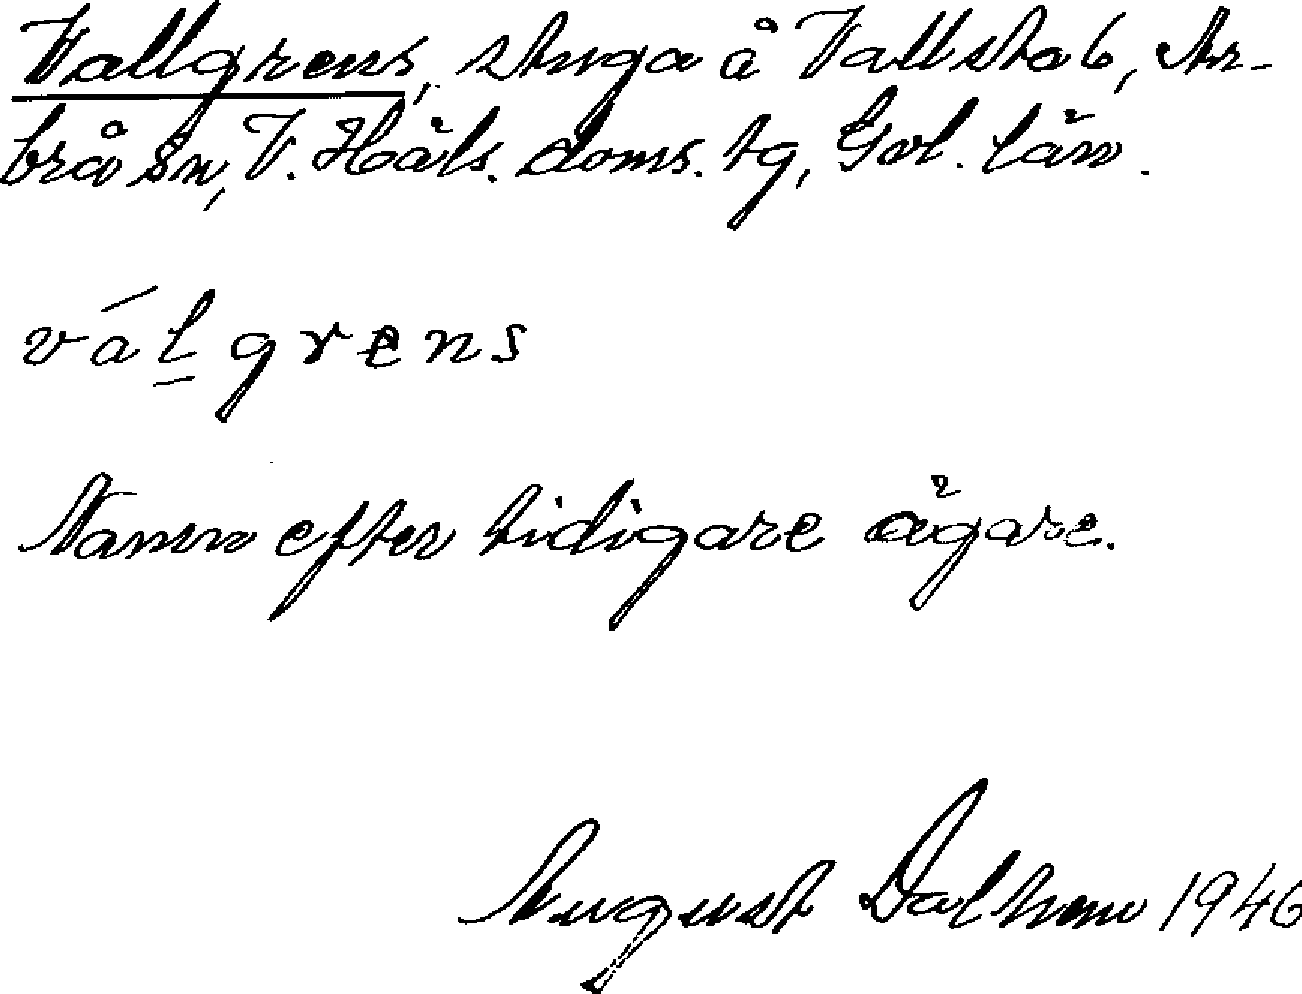 Vallgrens, stuga å Vallsta 6, Ar-
brå sn, V. Häls. doms. tg, Gvl. län.
válgrens
Namn efter tidigare ägare.
August Dalhem 1946